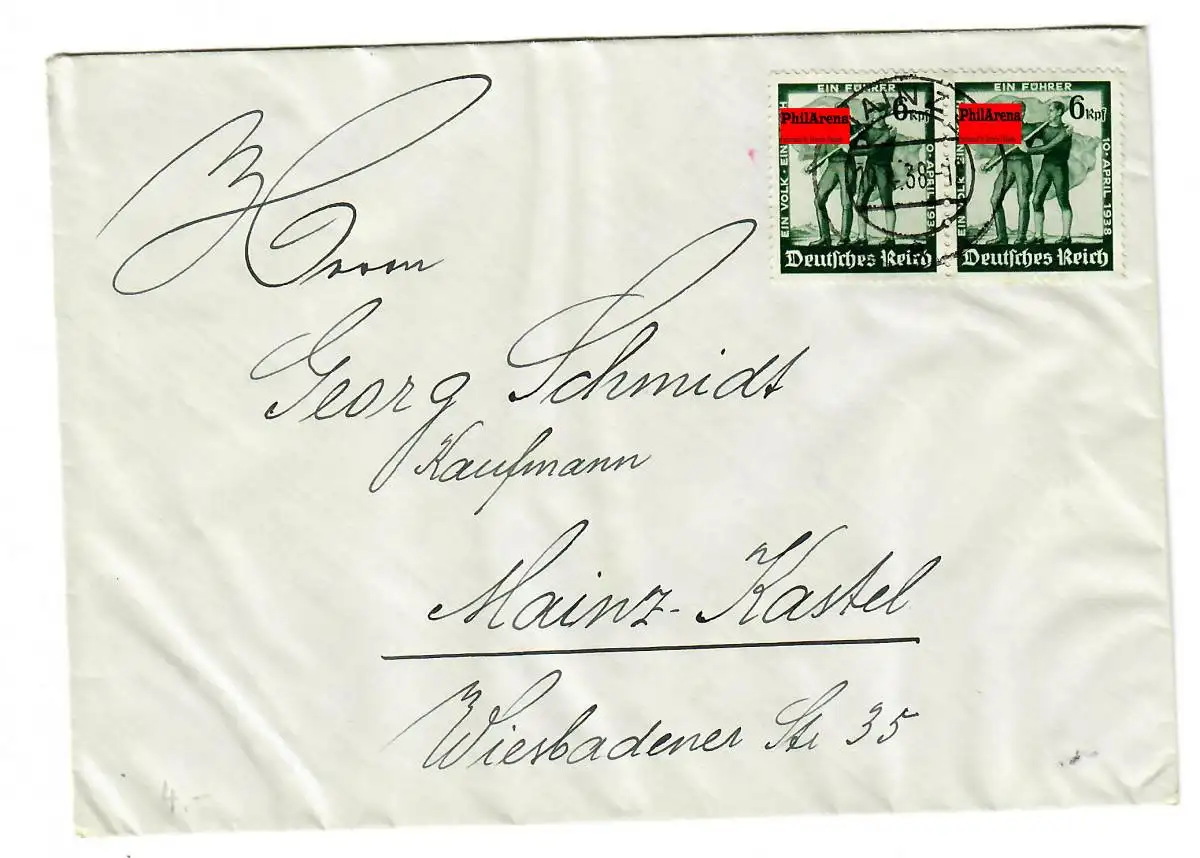 Herrn
Georg Schmidt
Kaufmann
Mainz-Kastel
Wiesbadener Str 35
EIN FÜHRER
6 Rpf
PhilArena
EIN VOLK · EIN
10 · APRIL · 193
Deutsches Reich
EIN FÜHRER
6 Rpf
PhilArena
EIN VOLK · EIN
10 · APRIL 1938
Deutsches Reich
MAINZ
38
4.-